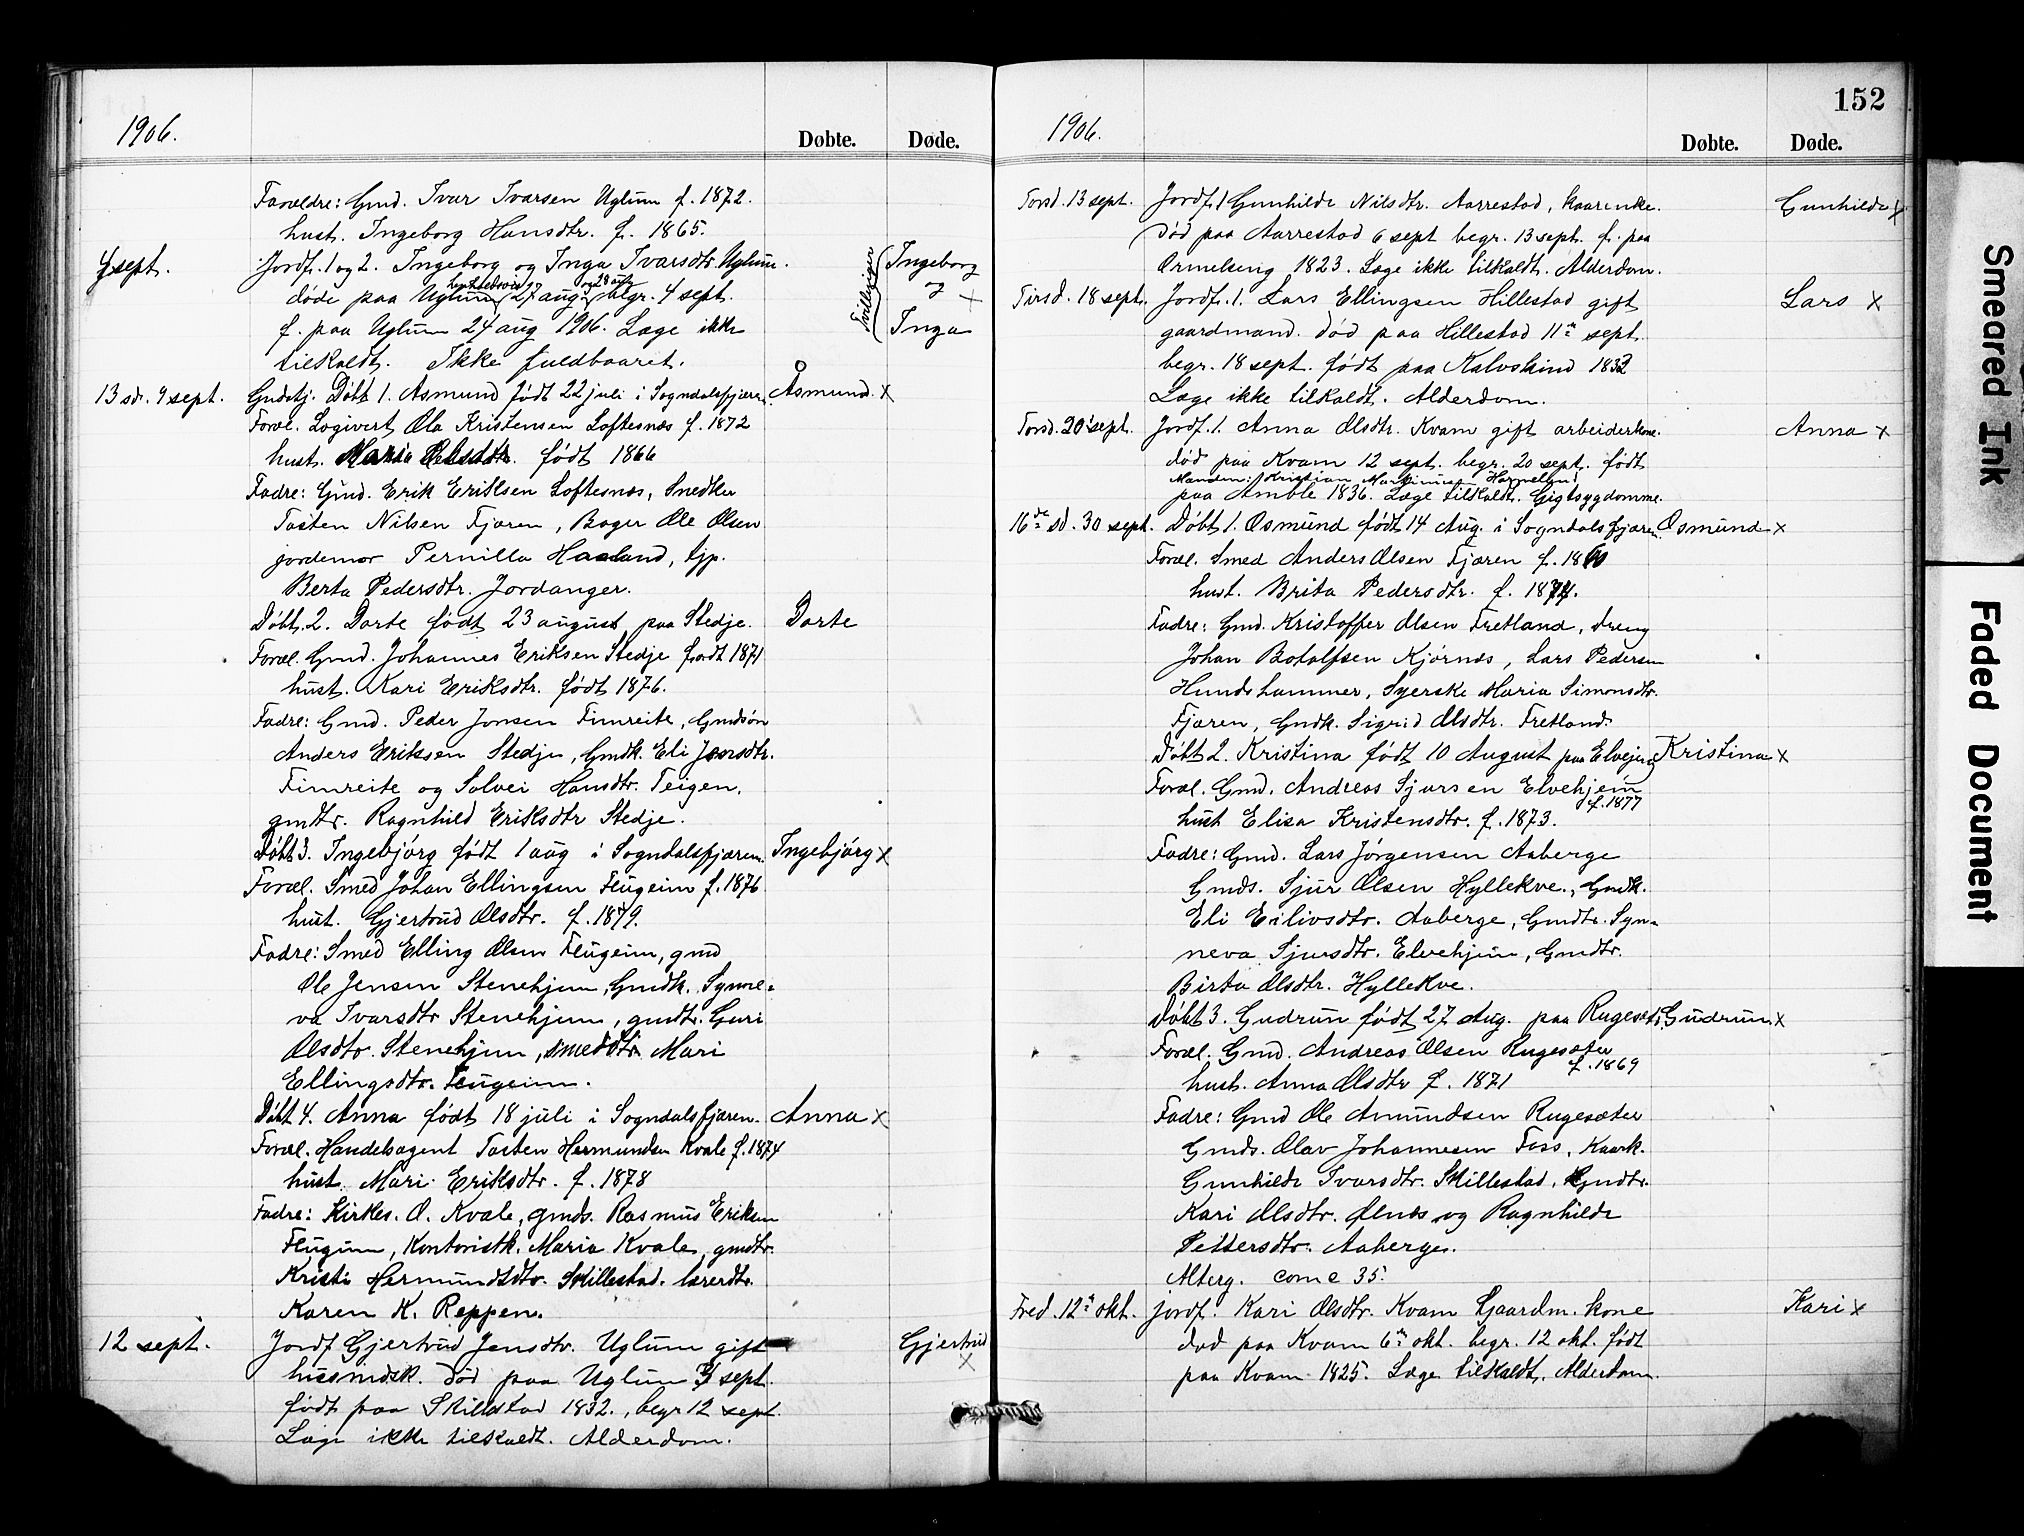 1906.
Døbte.
Døde.
Forældre: Gmd. Ivar Ivarsen Uglum f. 1872.
hust. Ingeborg Hansdtr. f. 1865.
4 sept.
Jordf. 1 og 2. Ingeborg og Inga Ivarsdtr. Uglum.
Tvillinger
Ingeborg
henholdsvis og 28 aug
døde paa Uglum 27 aug begr. 4 sept.
f. paa Uglum 24 aug 1906. Læge ikke
Inga
tilkaldt. Ikke fuldbaaret.
13 sd. 9 sept.
Gudstj. Døbt 1. Åsmund født 22 juli i Sogndalsfjæren.
Åsmund. x
Foræl. Logivert Ola Kristensen Loftesnæs f. 1872
hust. født 1866
Fadre: Gmd. Erik Eriksen Loftesnæs, Snedker
Tosten Nilsen Fjæren, Bager Ole Olsen
jordemor Pernilla Haaland, tjp.
Berta Pedersdtr. Jordanger.
Døbt. 2. Dorte født 23 august paa Stedje.
Dorte
Foræl. Gmd. Johannes Eriksen Stedje født 1871
hust. Kari Eriksdtr. født 1876.
Fadre: Gmd. Peder Jonsen Fimreite, Gmdsøn
Anders Eriksen Stedje, Gmdk. Eli Jonsdtr.
Fimreite og Solvei Hansdtr. Teigen,
gmdtr. Ragnhild Eriksdtr Stedje.
Døbt 3. Ingebjørg født 1 aug i Sogndalsfjæren.
Ingebjørg x
Foræl. Smed Johan Ellingsen Flugeim f. 1876
hust. Gjertrud Olsdtr. f. 1879.
Fadre: Smed Elling Olsen Flugeim, gmd
Ole Jensen Stenehjem, Gmdk. Synne-
va Ivarsdtr Stenehjem, gmdtr. Guri
Olsdtr. Stenehjem, smeddtr. Mari
Ellingsdtr. Flugeim.
Døbt 4. Anna født 18 juli i Sogndalsfjæren.
Anna x
Foræl. Handelsagent Tosten Hermundsen Kvale f. 1874
hust. Mari Eriksdtr. f. 1878
Fadre: Kirkes. O. Kvale, gmds. Rasmus Eriksen
Flugum, Kontoristk. Maria Kvale, gmdtr.
Kristi Hermundsdtr. Skillestad. lærerdtr.
Karen K. Reppen.
12 sept.
Jordf Gjertrud Jensdtr. Uglum gift
Gjertrud x
husmdsk. død paa Uglum 3 sept.
født paa Skillestad 1832., begr 12 sept.
Læge ikke tilkaldt. Alderdom.
152
1906.
Døbte.
Døde.
Torsd. 13 sept.
Jordf. 1 Gunhilde Nilsdtr. Aarrestad, kaarenke.
Gunhilde x
død paa Aarrestad 6 sept begr. 13 sept. f. paa
Ormelseng 1823. Læge ikke tilkaldt. Alderdom.
Tirsd. 18 sept.
Jordf. 1. Lars Ellingsen Hillestad gift
Lars x
gaardmand. død paa Hillestad 11te sept.
begr. 18 sept. født paa Kalvskind 1832
Læge ikke tilkaldt. Alderdom.
Torsd. 20 sept.
Jordf. 1. Anna Olsdtr. Kvam gift arbeiderkone.
Anna x
død paa Kvam 12 sept. begr. 20 sept. født
Manden: Kristian
paa Amble 1836. Læge tilkaldt. Gigtsygdomme.
16de sd. 30 sept.
Døbt 1. Osmund født 14 Aug. i Sogndalsfjæren.
Osmund x
Foræl. Smed Anders Olsen Fjæren f. 1860
hust. Brita Pedersdtr. f. 1874.
Fadre: Gmd. Kristoffer Olsen Fretland, dreng
Johan Botolfsen Kjørnes, Lars Pedersen
Hundshammer, Syerske Maria Simonsdtr.
Fjæren, Gmdk. Sigrid Olsdtr. Fretland.
Døbt 2. Kristina født 10 August paa Elvejem
Kristina x
Foræl. Gmd. Andreas Sjursen Elvehjem
f. 1877
hust Elisa Kristensdtr. f. 1873.
Fadre: Gmd. Lars Jørgensen Aaberge
Gmds. Sjur Olsen Hyllekve., Gmdk.
Eli Eilivsdtr. Aaberge, Gmdtr. Syn-
neva Sjursdtr. Elvehjem, Gmdtr.
Birta Olsdtr. Hyllekve.
Døbt 3. Gudrun født 27 Aug. paa Rugesæter.
Gudrun x
Foræl. Gmd. Andreas Olsen Rugesæter
f. 1869
hust. Anna Olsdtr f. 1871
Fadre: Gmd Ole Amundsen Rugesæter
Gmds. Olav Johannesen Foss, Kaark.
Gunhilde Ivarsdtr. Skillestad, Gmdtr.
Kari Olsdtr. Ølnes og Ragnhilde
Pettersdtr. Aaberge.
Alterg. com e 35.
Fred. 12te okt.
Jordf. Kari Olsdtr. Kvam Gaardm. kone
Kari x
død paa Kvam 6te okt. begr. 12 okt. født
paa Kvam 1825. Læge tilkaldt. Alderdom.
Smeared Ink
Faded Document